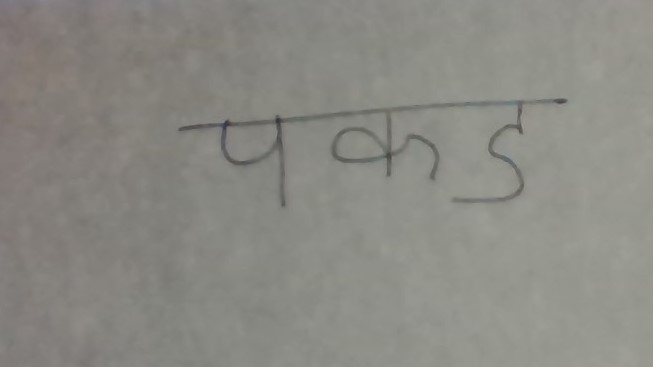 पकड